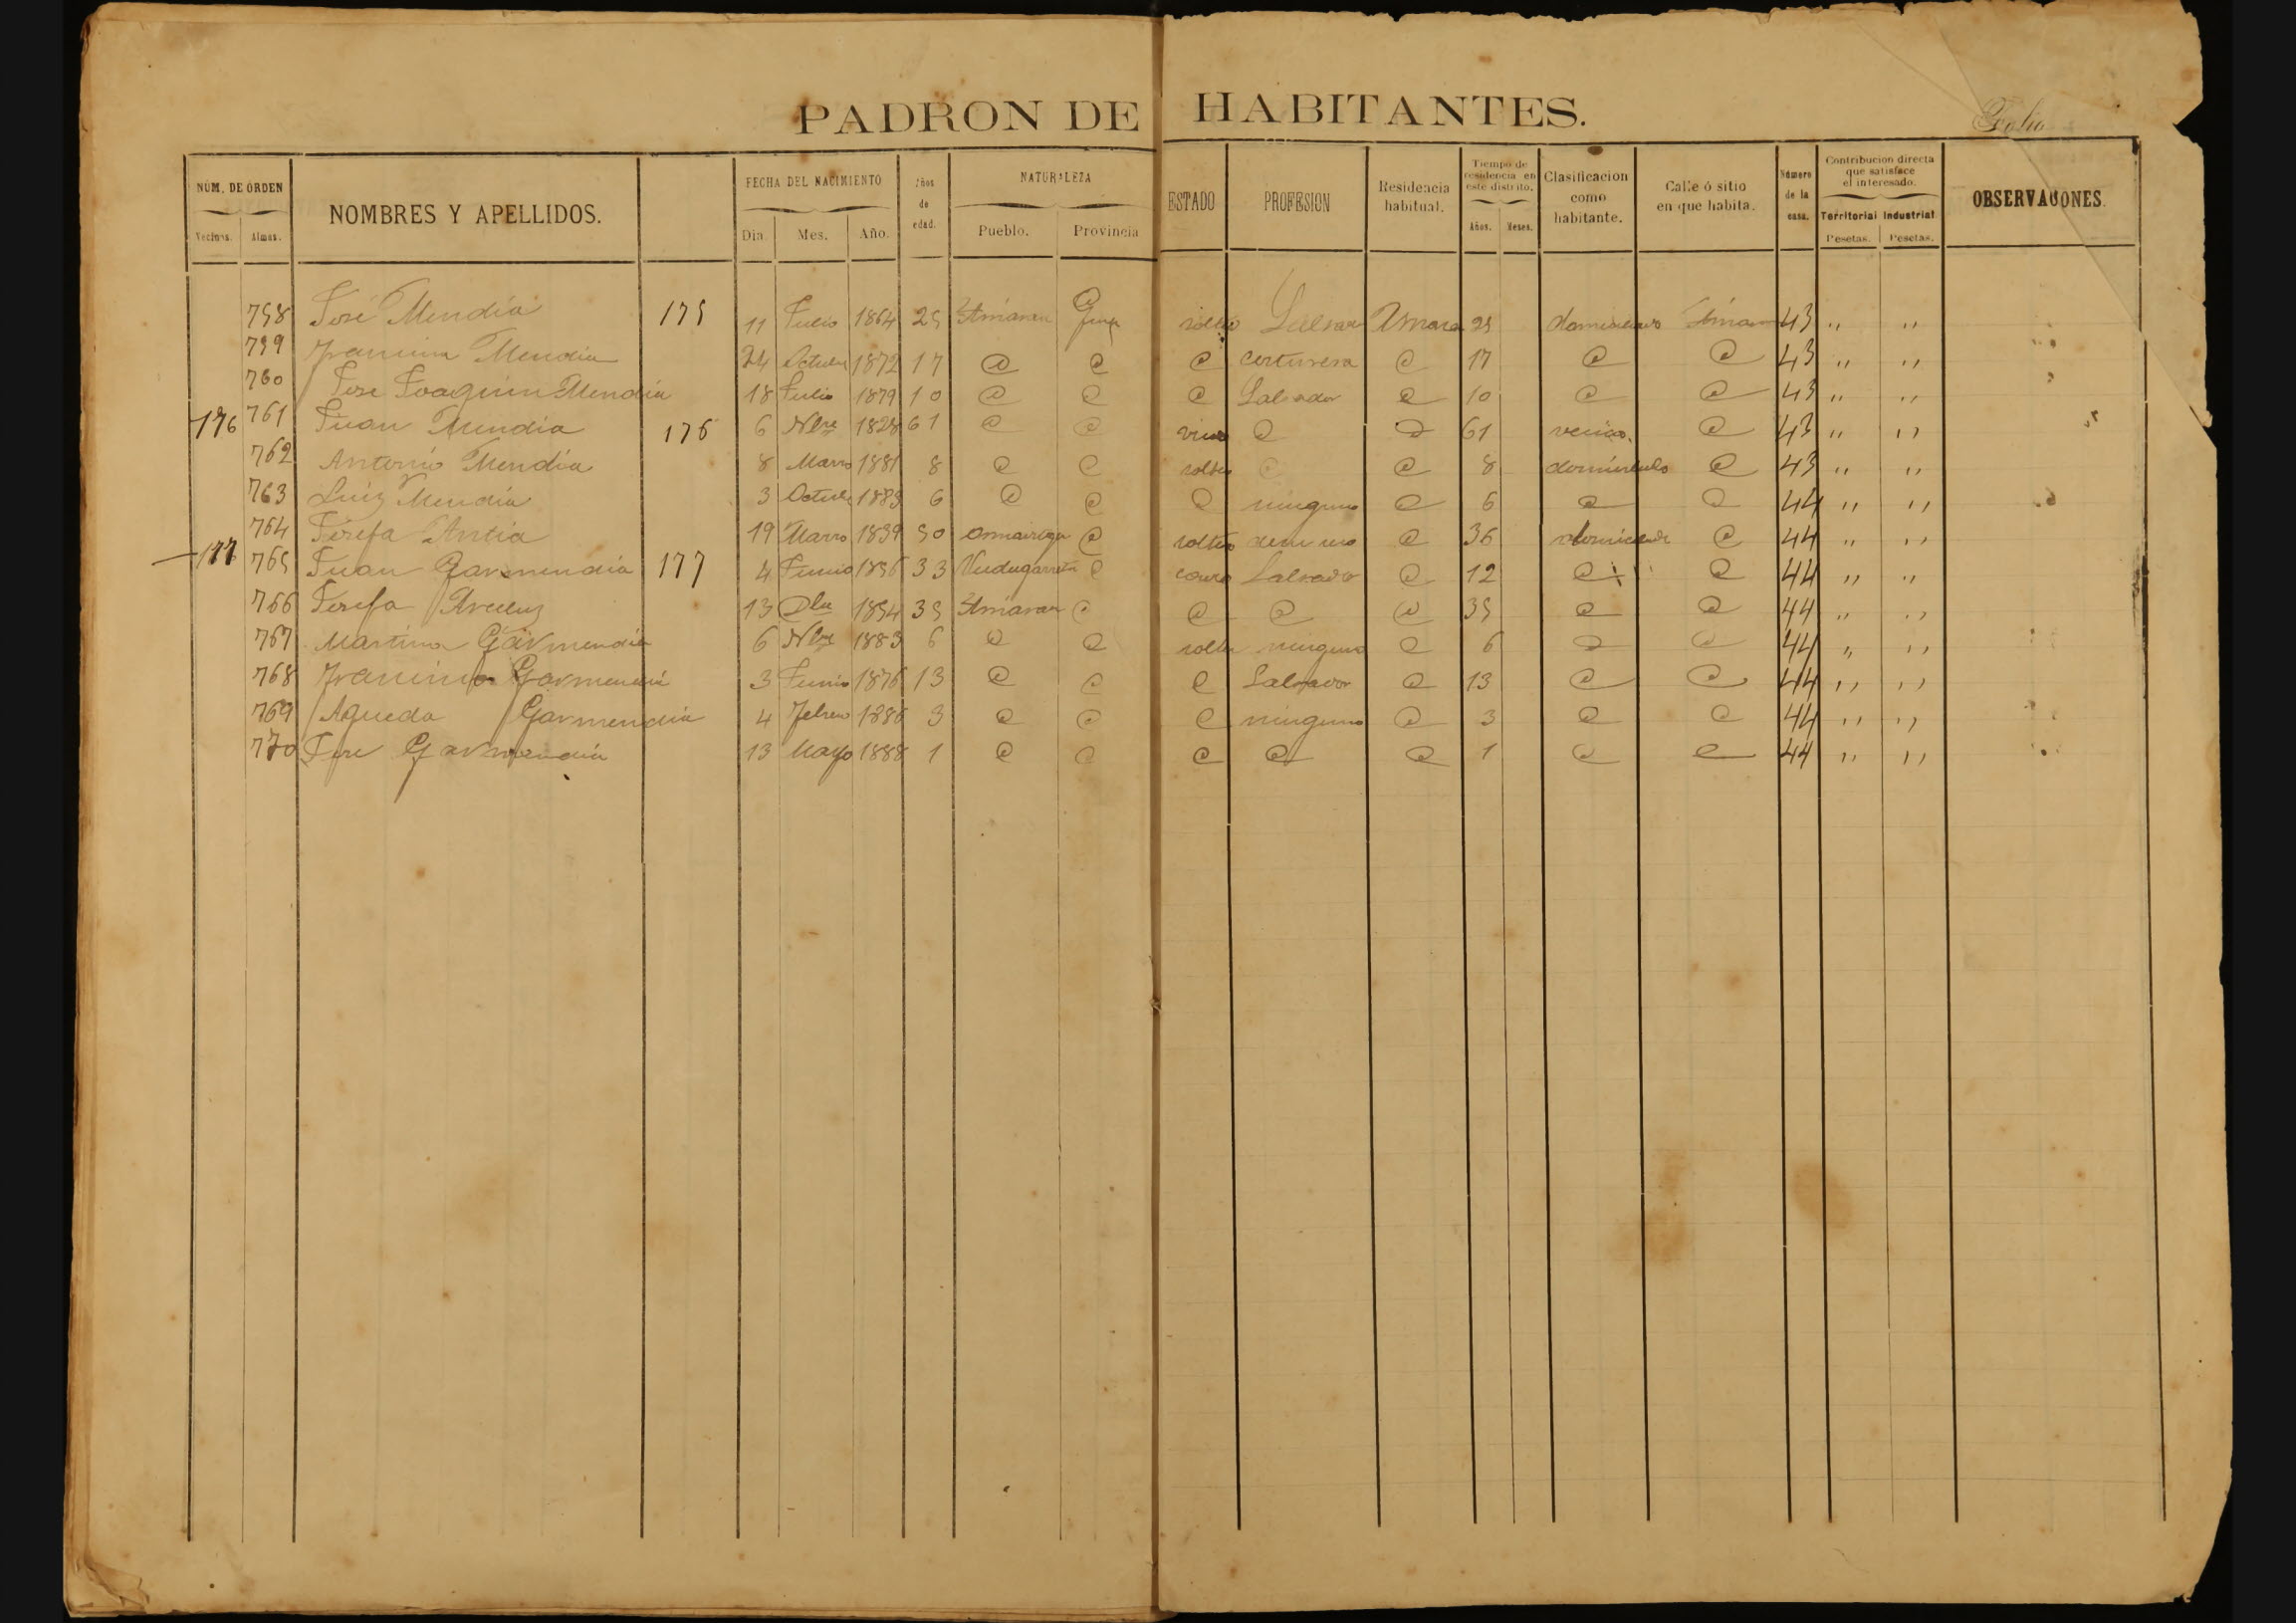 PADRON DE HABITANTES.
Folio
NÚM. DE ORDEN NOMBRES Y APELLIDOS. FECHA DEL NACIMIENTO Años de edad. NATURALEZA ESTADO PROFESION Residencia habitual. Tiempo de residencia en este distrito. Clasificacion como habitante. Calle ó sitio en que habita. Número de la casa. Contribucion directa que satisface el interesado. OBSERVACIONES.
Vecinos. Almas. Dia Mes. Año. Pueblo. Provincia Años. Meses. Territorial Industrial
Pesetas. Pesetas.
758 José Mendia 175 11 Julio 1864 25 Guip 25 43 " "
759 Mendia 24 1872 17 @ @ @ costurera @ 17 @ @ 43 " "
760 Jose Joaquin Mendia 18 Julio 1879 10 @ @ @ Labrador @ 10 @ @ 43 " "
176 761 Juan Mendia 176 6 Nbre 1828 61 @ @ @ @ 61 vecino. @ 43 " "
762 Antonio Mendia 8 Marzo 1881 8 @ @ @ @ 8 @ 43 " "
763 Luiz Mendia 3 1883 6 @ @ @ ninguno @ 6 @ @ 44 " "
764 Antia 19 Marzo 1839 50 @ @ 36 @ 44 " "
177 765 Juan Garmendia 177 4 Junio 1856 33 @ Labrador @ 12 @ @ 44 " "
766 13 1854 35 @ @ @ @ 35 @ @ 44 " "
767 Martina Garmendia 6 Nbre 1883 6 @ @ ninguno @ 6 @ @ 44 " "
768 Garmendia 3 Junio 1876 13 @ @ @ Labrador @ 13 @ @ 44 " "
769 Agueda Garmendia 4 Febrero 1886 3 @ @ @ ninguno @ 3 @ @ 44 " "
770 Jose Garmendia 13 Mayo 1888 1 @ @ @ @ @ 1 @ @ 44 " "